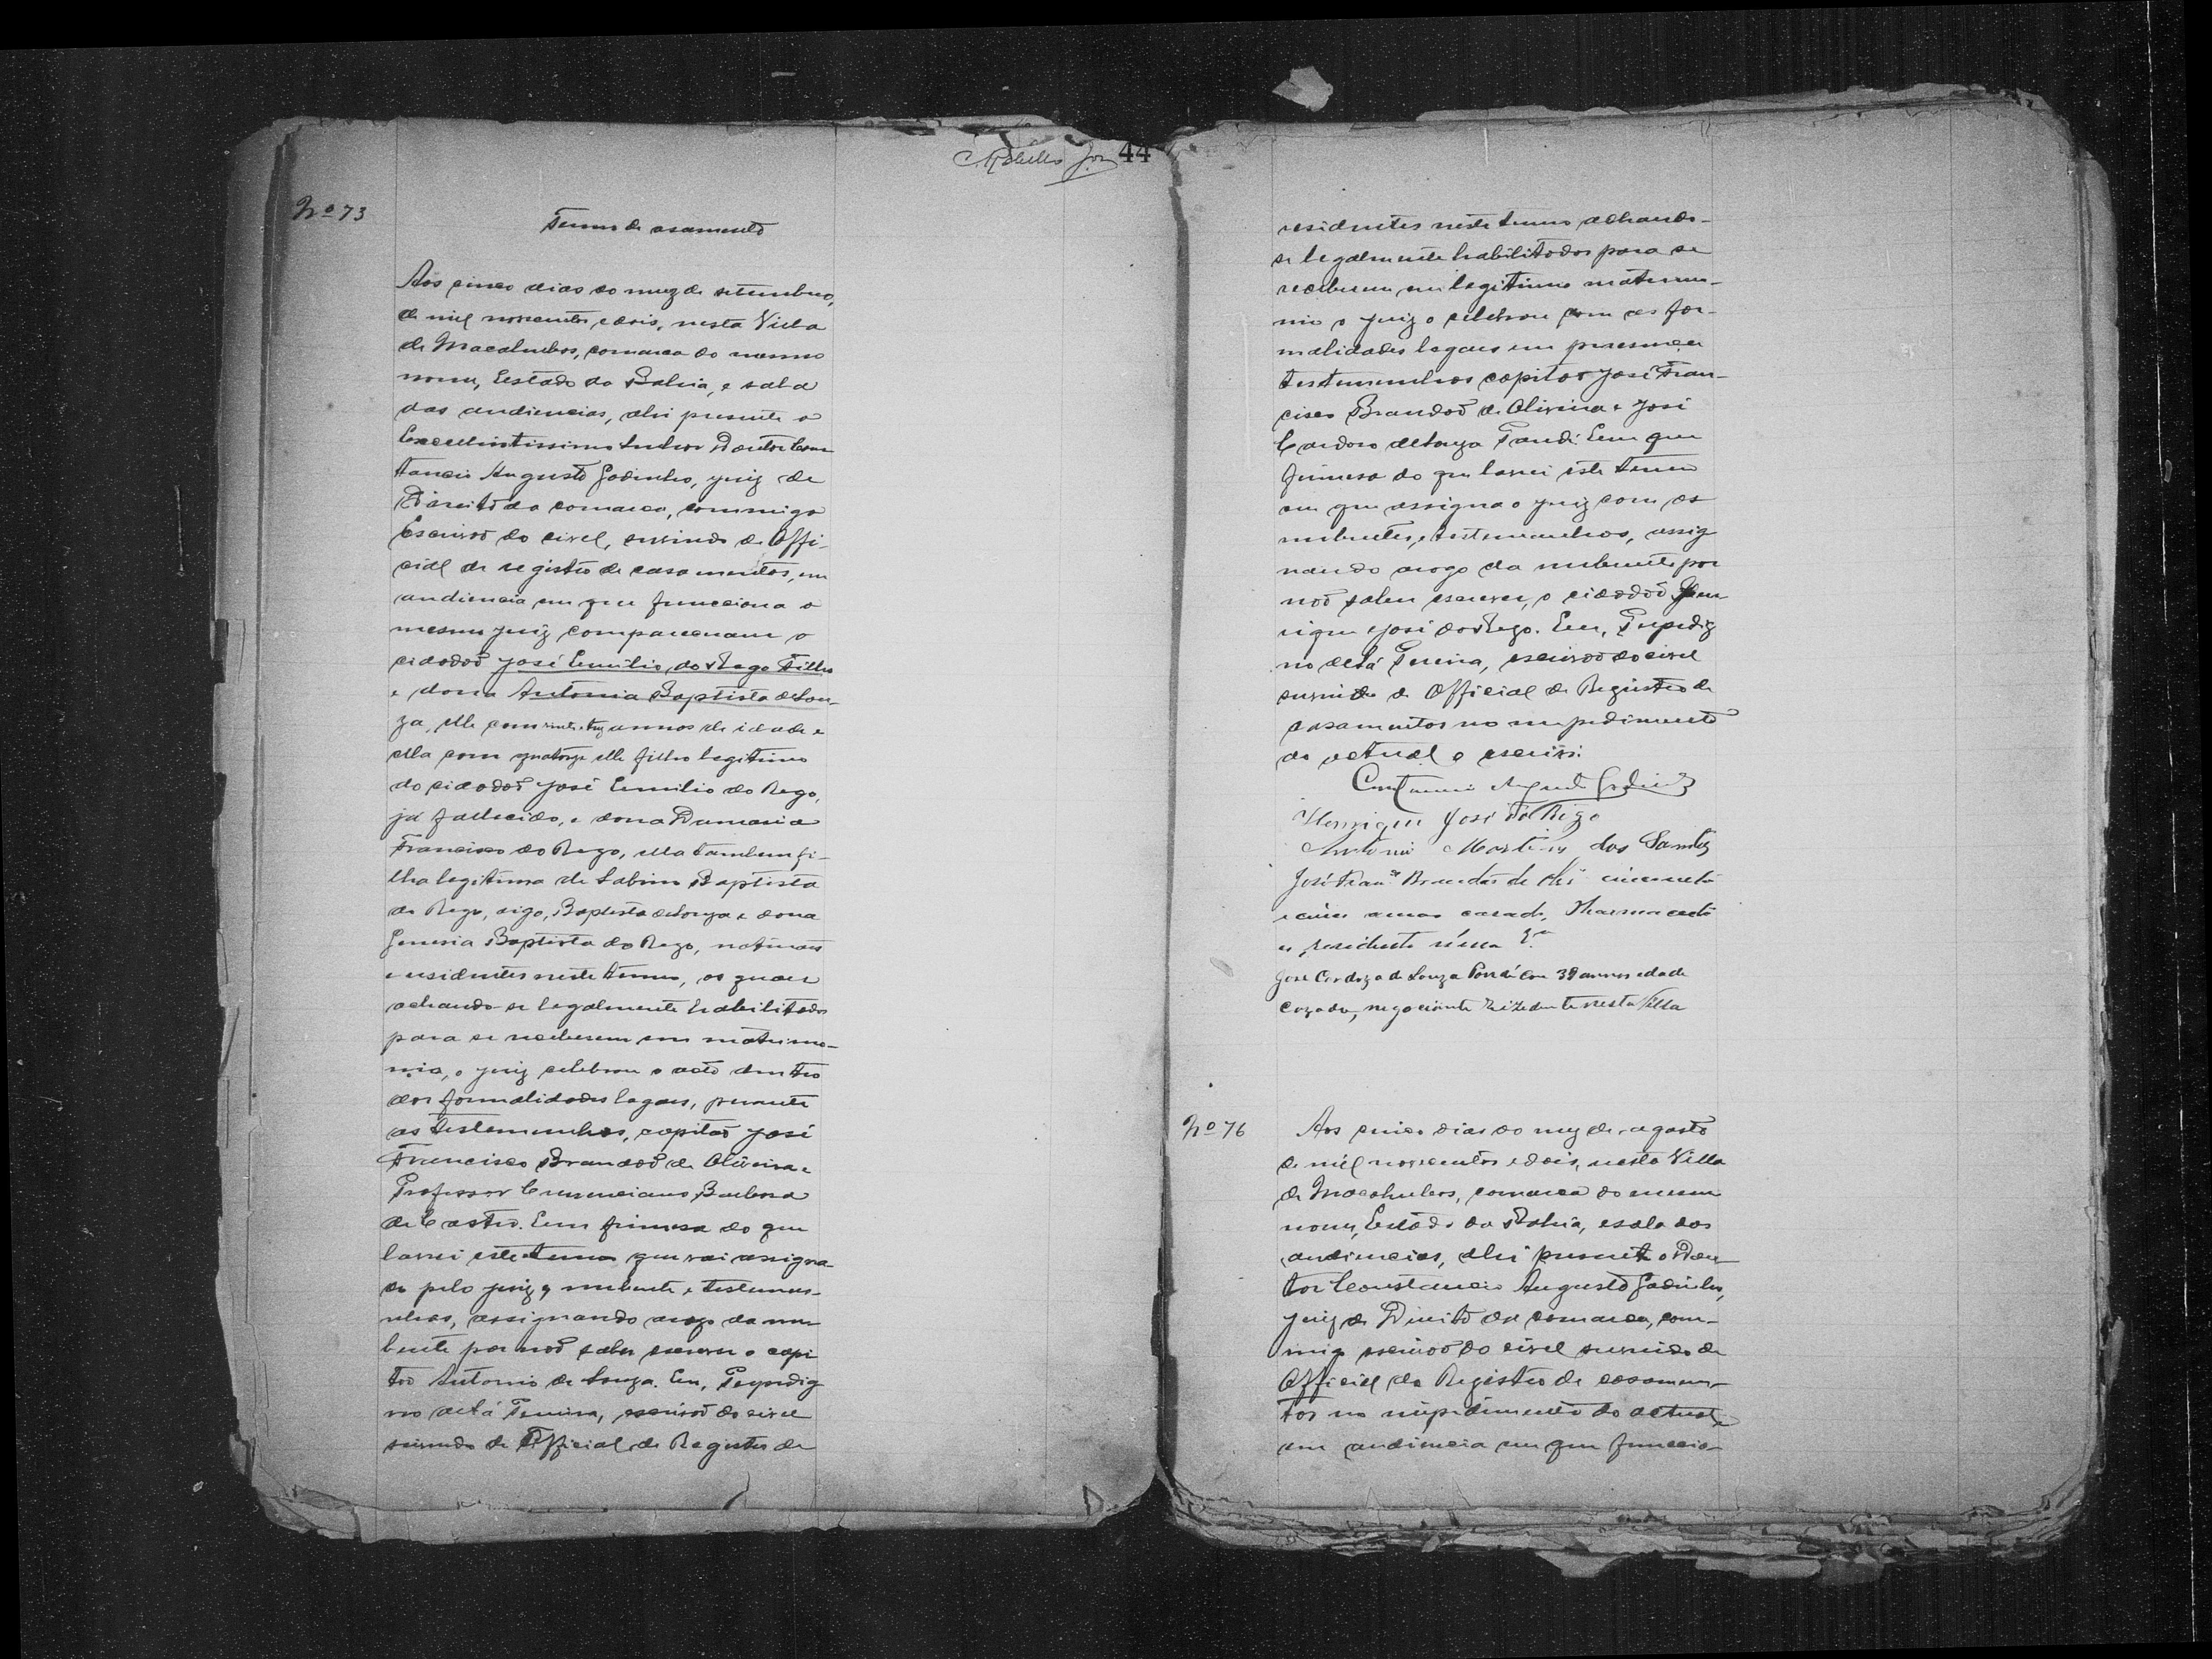 44
Nº 73
Termo de casamento
Aos cinco dias do mez de setembro,
de mil novecentos e dois, nesta Villa
de Macahubas, comarca do mesmo
nome, Estado da Bahia, e sala
das audiencias, ahi presente o
Excellentissimo Senhor Doutor Cons
tancio Augusto Godinho, juiz de
Direito da comarca, commigo
Escrivão do civel, servindo de Offi-
cial de registro de casamentos, em
audiencia em que funcciona o
mesmo juiz compareceram o
cidadão José Emilio do Rego Filho
e dona Antonia Baptista de Sou-
za, elle com vinte e trez annos de idade e
ella com quatorze elle filho legitimo
do cidadão José Emilio do Rego,
já fallecido, e dona Damasia
Francisca do Rego, ella tambem fi-
lha legitima de Sabino Baptista
do Rego, digo, Baptista de Souza e dona
Genesia Baptista do Rego, naturaes
e residentes neste termo, os quaes
achando-se legalmente habilitados
para se receberem em matrimo-
nio, o juiz celebrou o acto dentro
das formalidades legaes, perante
as testemunhas, capitão José
Francisco Brandão de Oliveira e
Professor Cresenciano Barbosa
de Castro. Em firmesa do que
lavrei este termo que vai assigna-
do pelo juiz, nubente e testemu-
nhas, assignando arogo da nu
bente por não saber escrever o capi
tão Antonio de Souza. Eu,
de Sá Pereira, escrivão do civel
servindo de Official de Registro de
residentes neste termo achando-
se legalmente habilitados para se
receberem em legitimo matrimo-
nio o juiz o celebrou com as for-
malidades legaes em presença
testemunhas capitão José Fran-
cisco Brandão de Oliveira e José
Cardoso de Souza Em que
firmesa do que lavrei este termo
em que assigna o juiz com os
nubentes, e testemunhas, assig
nando arogo da nubente por
não saber escrever, o cidadão Hen
rique José do Rego. Eu,
no de Sá Pereira, escrivão do civel
servindo de Official de Registro de
casamentos no impedimento
do actual o escrivi.
Constancio Augusto Godinho
Henrique José do Rego
Antonio Martins dos Santos
José Franco Brandão de Olia cincoenta
e cinco annos casado, Pharmaceuti
co, residente n'esta Va
José Cardozo de Souza com 39 annos edade
Cazado, negociante rezidente nesta Villa
Nº 76
Aos cinco dias do mez de agosto
de mil novecentos e dois, nesta Villa
de Macahubas, comarca do mesmo
nome, Estado da Bahia, e sala das
audiencias, ahi presente o Dou
tor Constancio Augusto Godinho,
juiz de Direito da comarca, com-
migo escrivão do civel servindo de
Official do Registro de casamen-
tos no impedimento do actual,
em audiencia em que funccio-